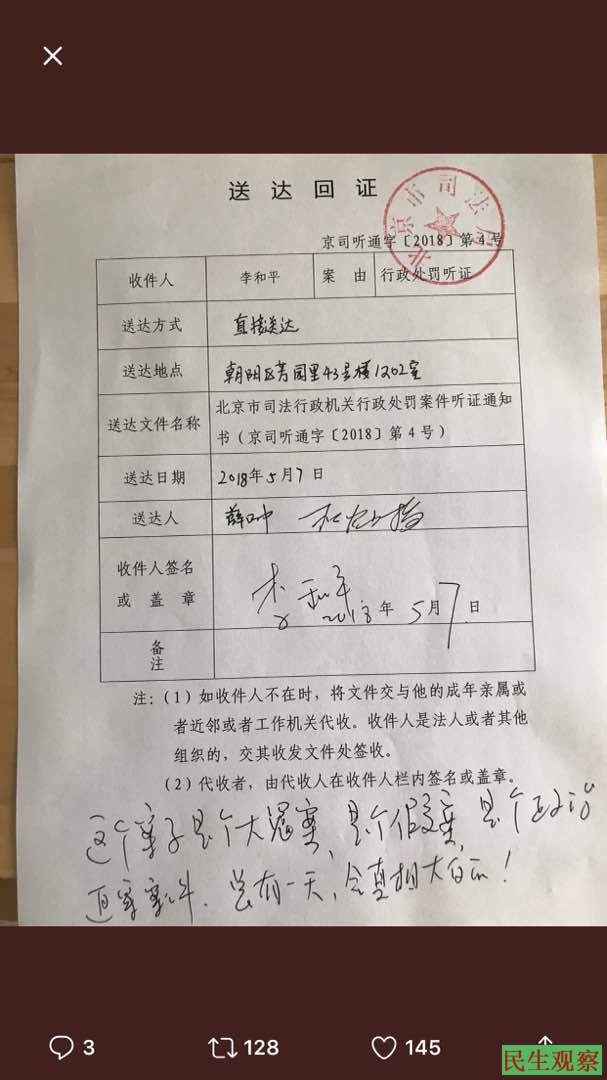 送达回证
北京市司法局
京司听通字〔2018〕第4号
收件人 李和平 案由 行政处罚听证
送达方式 直接送达
送达地点 朝阳区芳园里43号楼1202室
送达文件名称 北京市司法行政机关行政处罚案件听证通知
书（京司听通字〔2018〕第4号）
送达日期 2018年5月7日
送达人
收件人签名
或盖章 李和平
2018年5月7日
备
注
注：（1）如收件人不在时，将文件交与他的成年亲属或
者近邻或者工作机关代收。收件人是法人或者其他
组织的，交其收发文件处签收。
（2）代收者，由代收人在收件人栏内签名或盖章。
这个案子是个大冤案，是个假案，是个政治
案件，总有一天，会真相大白的！
3 128 145
民生观察